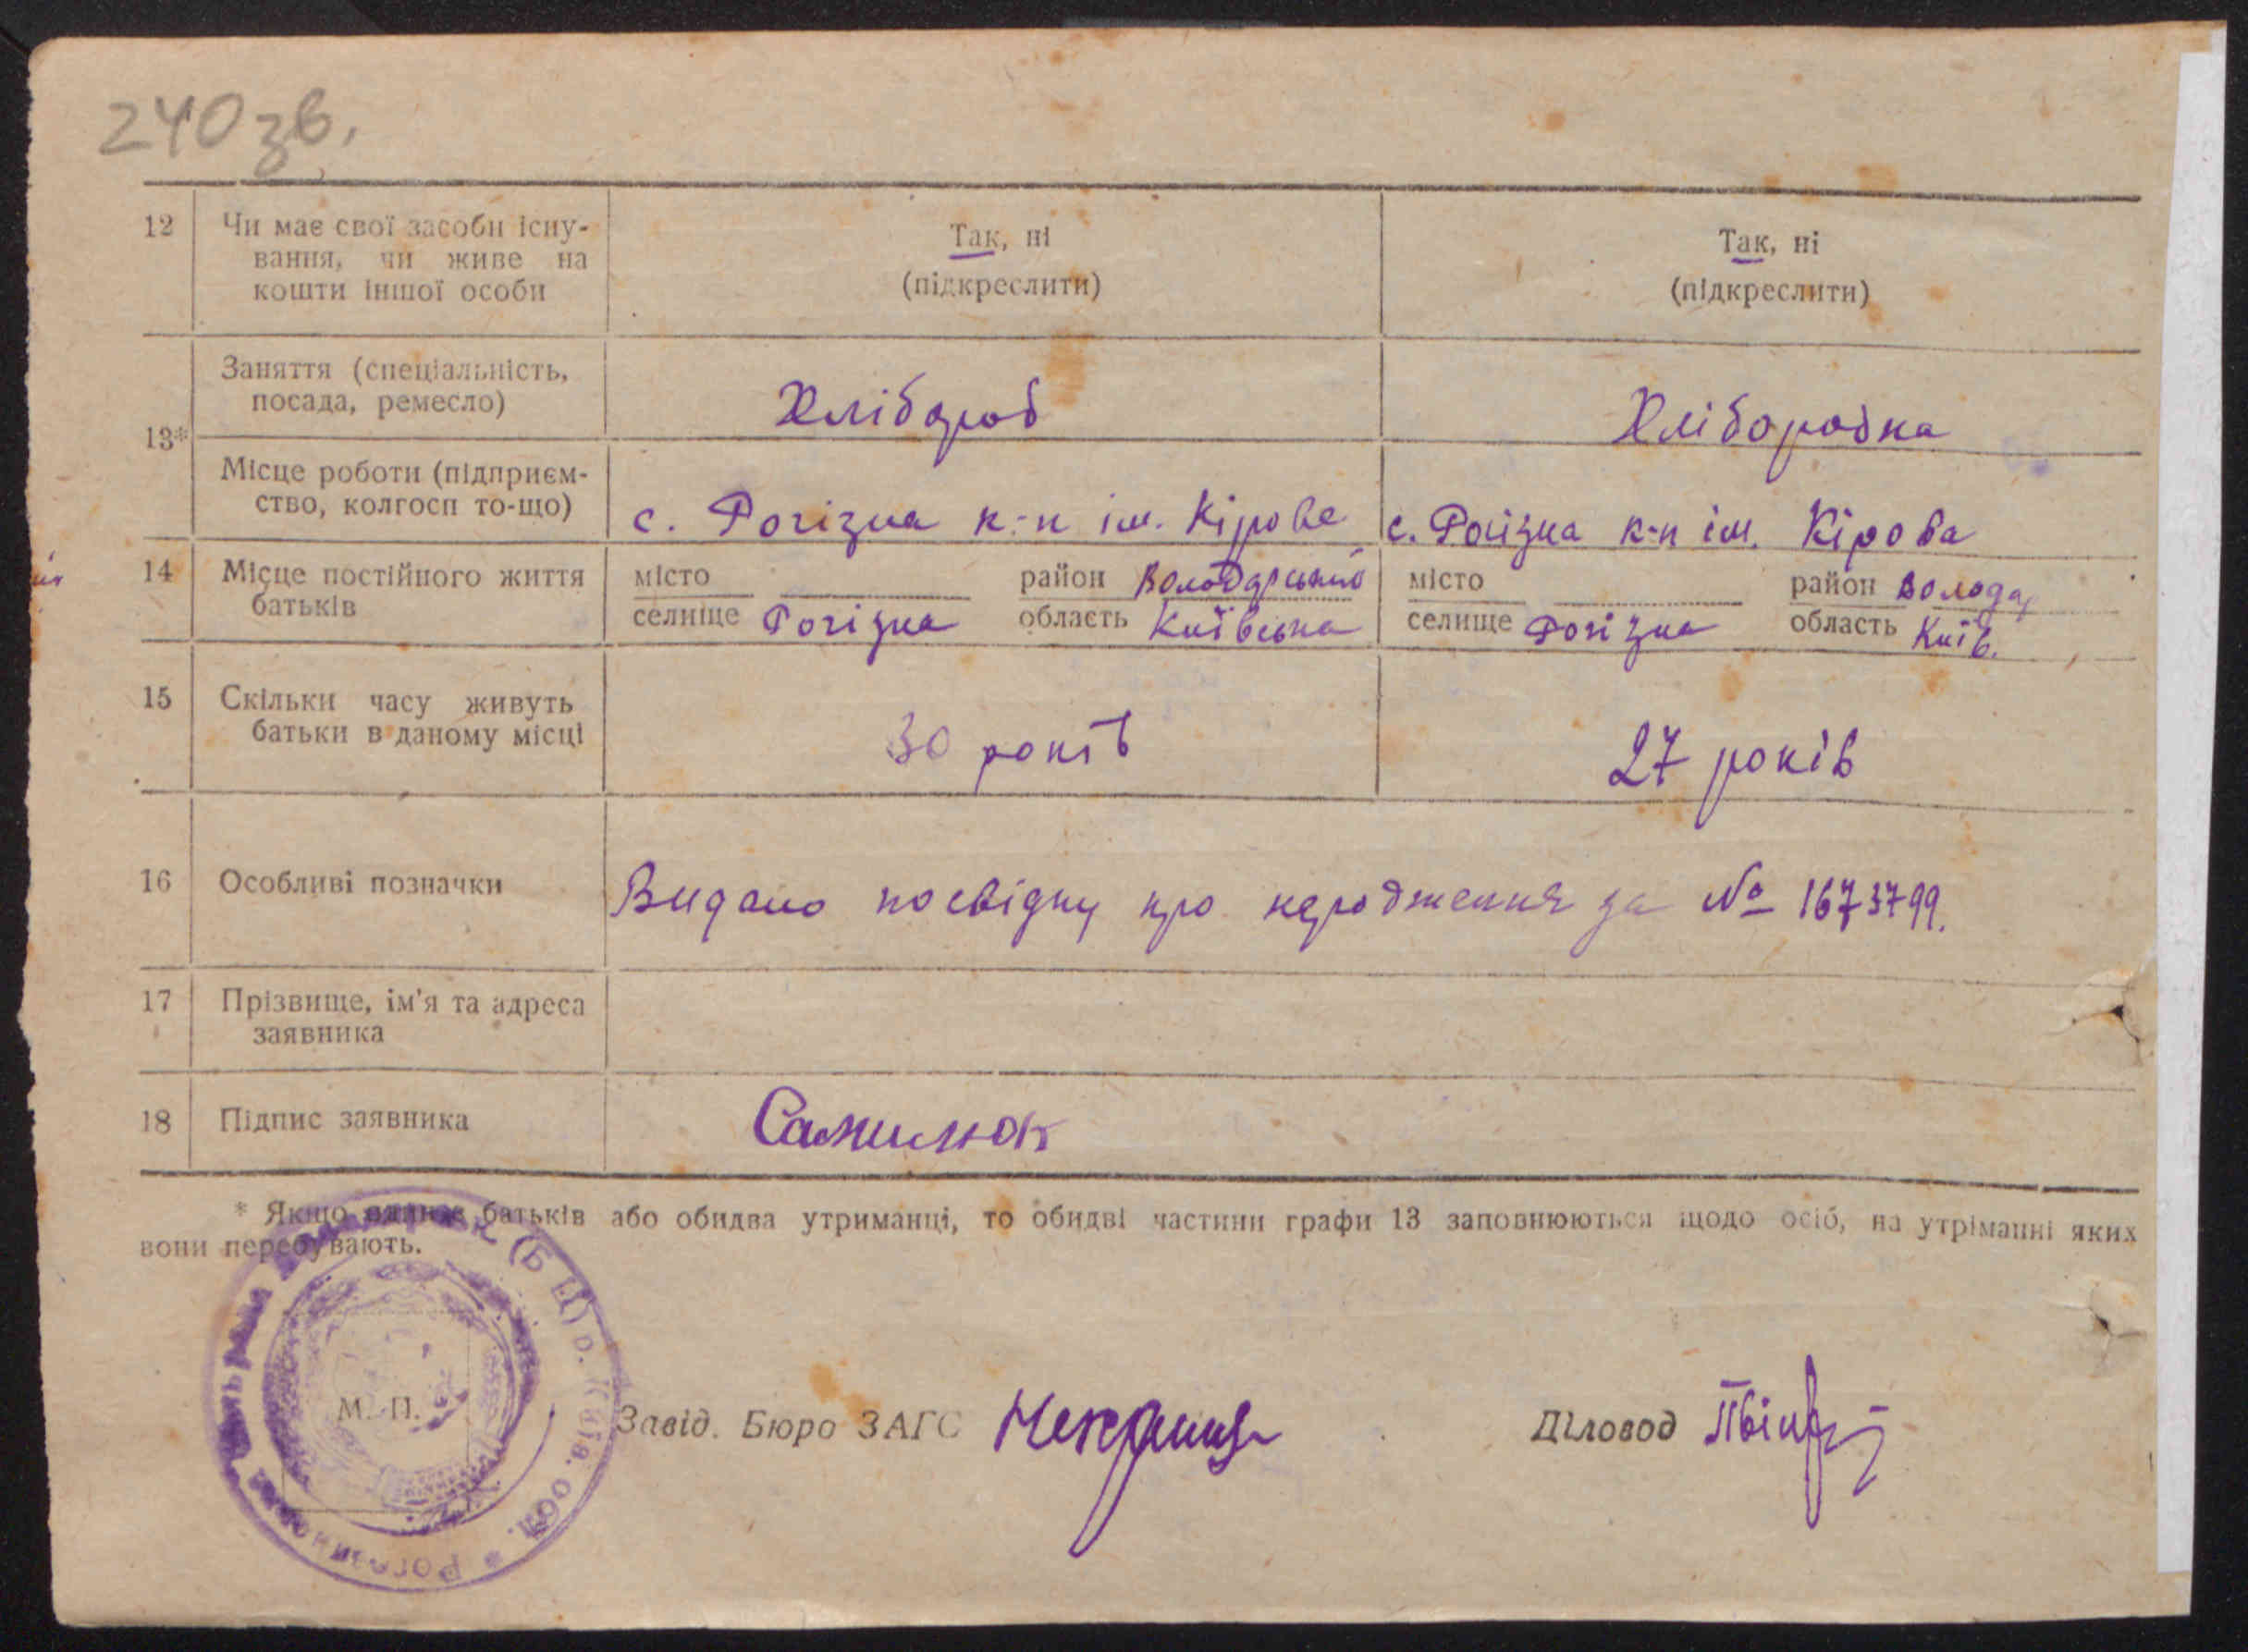 240 зв.
12 Чи має свої засоби існу-
вання, чи живе на
кошти іншої особи
Так, ні
(підкреслити)
Так, ні
(підкреслити)
13*
Заняття (спеціальність,
посада, ремесло)
Хлібороб
Хлібородка
Місце роботи (підприєм-
ство, колгосп то-що)
с. Рогізна к-п ім. Кірова
с. Рогізна к-п ім. Кірова
14 Місце постійного життя
батьків
місто район Володарський
селище Рогізна область Київська
місто район Володар
селище Рогізна область Київ.
15 Скільки часу живуть
батьки в даному місці
30 років
27 років
16 Особливі позначки
Видано посвідку про народження за № 1673799.
17 Прізвище, ім'я та адреса
заявника
18 Підпис заявника
Самилюк
* Якщо батьків або обидва утриманці, то обидві частини графи 13 заповнюються щодо осіб, на утріманні яких
вони перебувають.
(Б Ц) р. Київ. обл. * Рогізнянська
М. П.
Завід. Бюро ЗАГС
Діловод